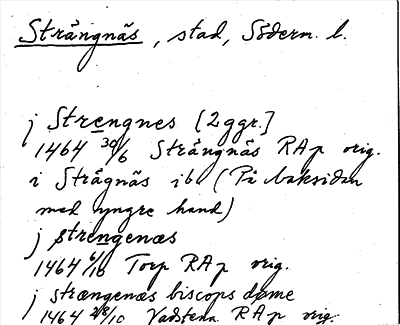 Strängnäs, stad, Söderm. l.
j Strengnes [2 ggr.]
1464 30/6 Strängnäs RAp orig.
i Strägnäs ib (På baksidan
med yngre hand)
j strengenæs
1464 6/10 Torp RAp orig.
j strængenæs biscops døme
1464 28/10 Vadstena RAp orig.